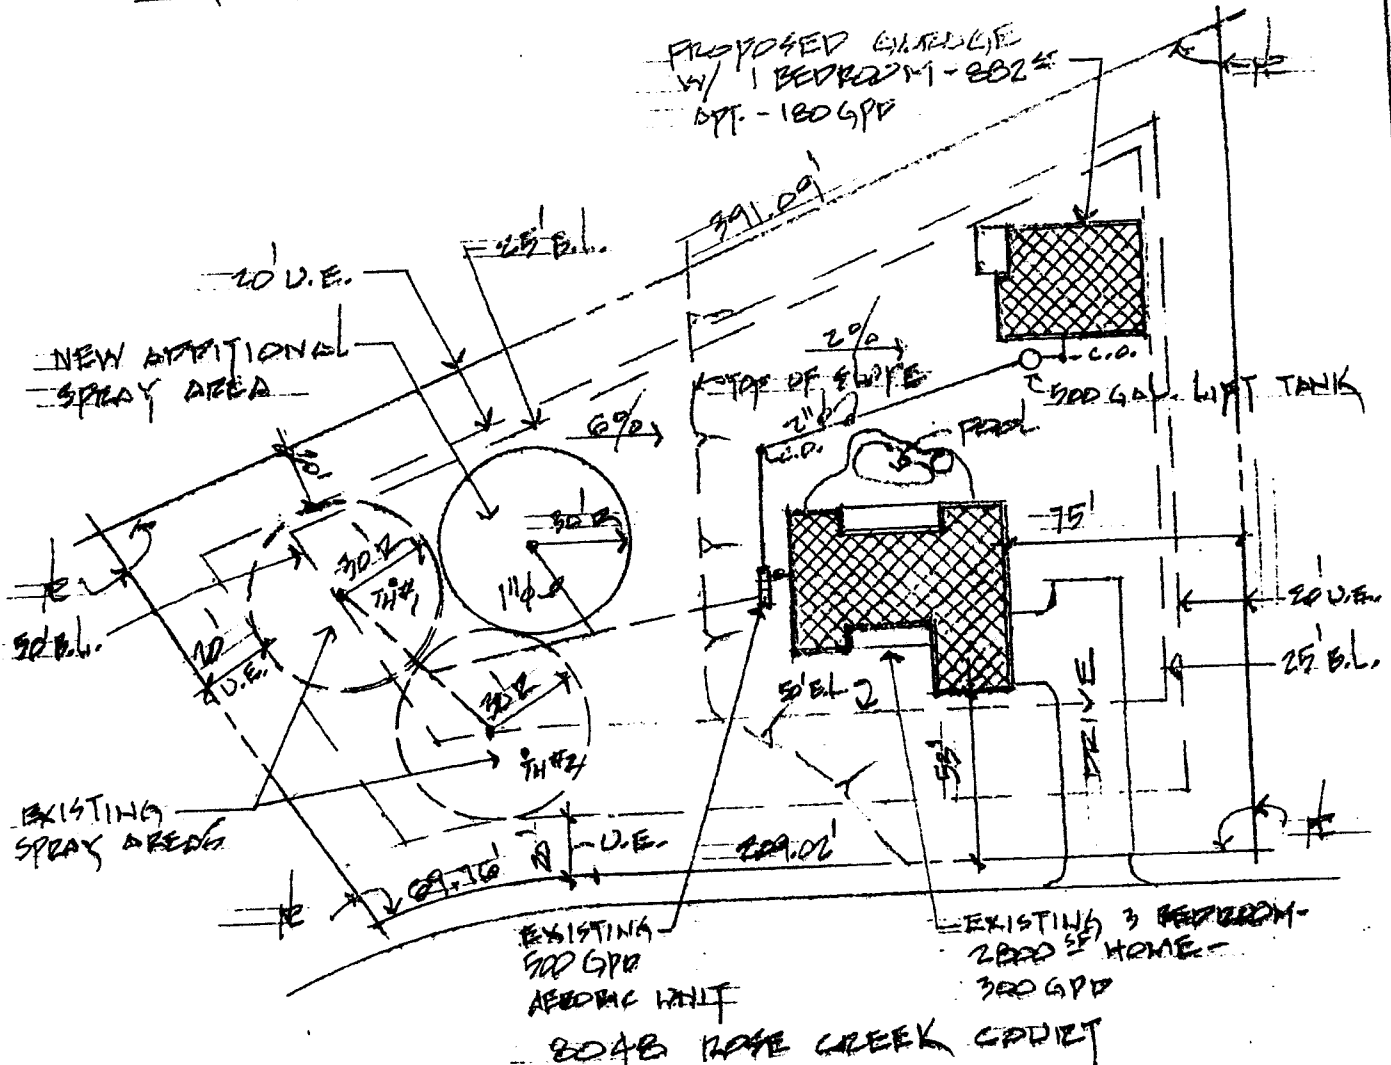 PROPOSED GARAGE
W/ 1 BEDROOM - 882 SF
APT. - 180 GPD
391.09'
25' B.L.
20' U.E.
NEW ADDITIONAL
SPRAY AREA
2%
TOP OF SLOPE
6%
C.O.
500 GAL. LIFT TANK
2"ϕ
C.O.
POOL
75'
30'R
30'R
TH#1
1"ϕ
50' B.L.
20'
U.E.
30'R
TH#2
50' B.L.
20' U.E.
25' B.L.
DRIVE
53'
EXISTING
SPRAY AREAS
20'
U.E.
209.02'
69.76'
EXISTING
500 GPD
AEROBIC UNIT
EXISTING 3 BEDROOM-
2800 SF HOME -
300 GPD
8048 ROSE CREEK COURT